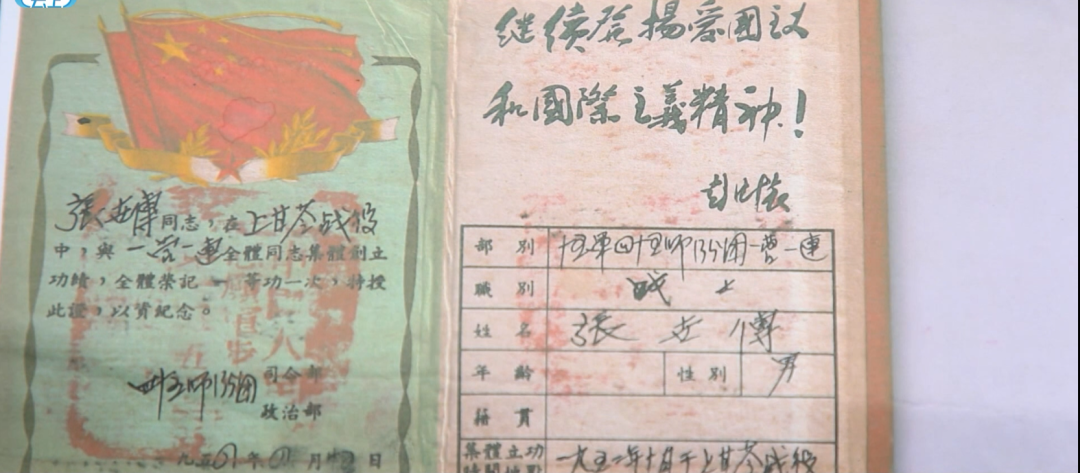 張世傳同志，在上甘苓战役
中，與一营一連全體同志集體創立
功績，全體榮記一等功一次，特授
此證，以資紀念。
四十五师135团
司令部
政治部
年 月 日
继續發揚愛國主义
和國際主義精神！
彭德怀
部別 十五军四十五师135团一营一連
職別 战士
姓名 張世傳
年齡 性別 男
籍貫
集體立功 一九五二年十月于上甘苓战役